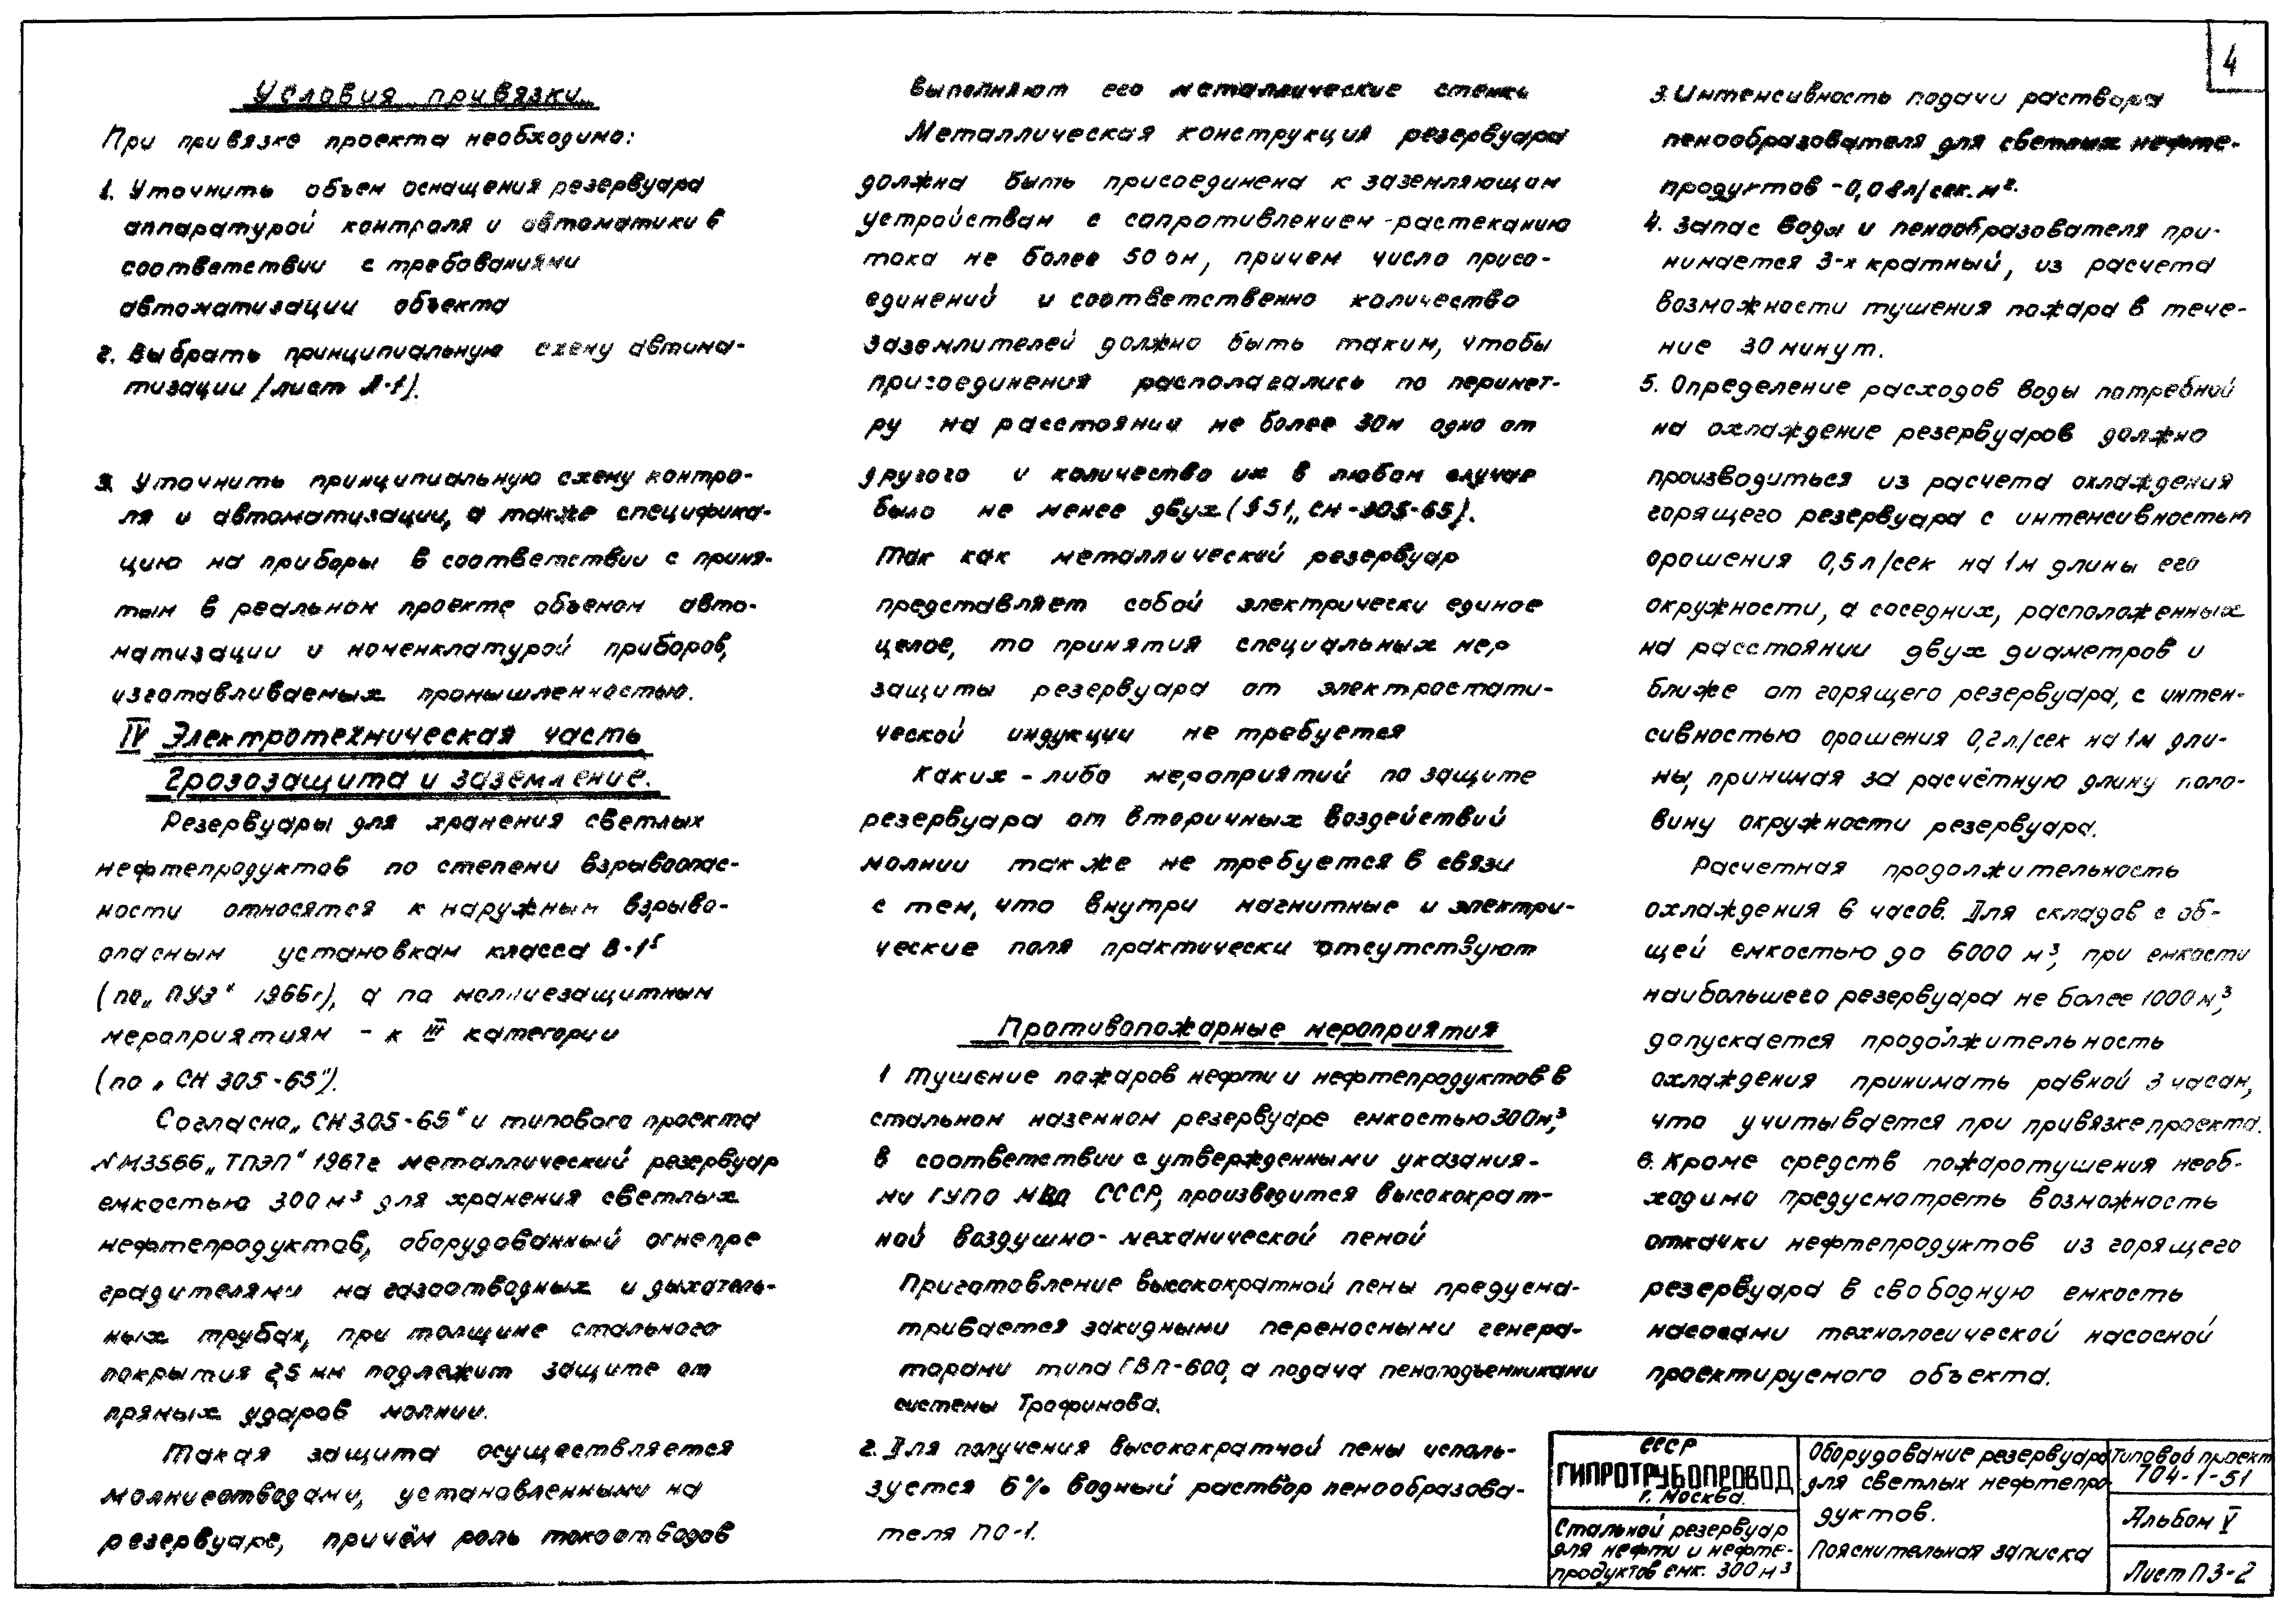 4
Условия привязки
При привязке проекта необходимо:
1. Уточнить объем оснащения резервуара
аппаратурой контроля и автоматики в
соответствии с требованиями
автоматизации объекта
2. Выбрать принципиальную схему автома-
тизации /лист А-1/.
3. Уточнить принципиальную схему контро-
ля и автоматизации, а также специфика-
цию на приборы в соответствии с приня-
тым в реальном проекте объемом авто-
матизации и номенклатурой приборов,
изготавливаемых промышленностью.
IV Электротехническая часть
Грозозащита и заземление.
Резервуары для хранения светлых
нефтепродуктов по степени взрывоопас-
ности относятся к наружным взрыво-
опасным установкам класса В-1г
(по „ПУЭ" 1966г), а по молниезащитным
мероприятиям - к III категории
(по „СН 305-65").
Согласно „СН 305-65" и типового проекта
№М3566 „ТПЭП" 1967г металлический резервуар
емкостью 300 м³ для хранения светлых
нефтепродуктов, оборудованный огнепре
градителями на газоотводных и дыхатель-
ных трубах, при толщине стального
покрытия 2,5 мм подлежит защите от
прямых ударов молнии.
Такая защита осуществляется
молниеотводами, установленными на
резервуаре, причём роль токоотводов
выполняют его металлические стенки
Металлическая конструкция резервуара
должна быть присоединена к заземляющим
устройствам с сопротивлением растеканию
тока не более 50 ом, причем число присо-
единений и соответственно количество
заземлителей должно быть таким, чтобы
присоединения располагались по перимет-
ру на расстоянии не более 30м одно от
другого и количество их в любом случае
было не менее двух (§51 „СН-305-65).
Так как металлический резервуар
представляет собой электрически единое
целое, то принятия специальных мер
защиты резервуара от электростати-
ческой индукции не требуется
Каких-либо мероприятий по защите
резервуара от вторичных воздействий
молнии также не требуется в связи
с тем, что внутри магнитные и электри-
ческие поля практически отсутствуют
Противопожарные мероприятия
1 Тушение пожаров нефти и нефтепродуктов в
стальном наземном резервуаре емкостью 300м³,
в соответствии с утвержденными указания-
ми ГУПО МВД СССР, производится высократ-
ной воздушно-механической пеной
Приготовление высокократной пены предусма-
тривается закидными переносными генера-
торами типа ГВП-600, а подача пеноподъемниками
системы Трофимова.
2. Для получения высокократной пены исполь-
зуется 6% водный раствор пенообразова-
теля ПО-1.
3. Интенсивность подачи раствора
пенообразователя для светлых нефте-
продуктов -0,08л/сек.м².
4. Запас воды и пенообразователя при-
нимается 3-х кратный, из расчета
возможности тушения пожара в тече-
ние 30 минут.
5. Определение расходов воды потребной
на охлаждение резервуаров должно
производиться из расчета охлаждения
горящего резервуара с интенсивностью
орошения 0,5 л/сек на 1м длины его
окружности, а соседних, расположенных
на расстоянии двух диаметров и
ближе от горящего резервуара, с интен-
сивностью орошения 0,2л/сек на 1м дли-
ны, принимая за расчётную длину поло-
вину окружности резервуара.
Расчетная продолжительность
охлаждения 6 часов. Для складов с об-
щей емкостью до 6000 м³, при емкости
наибольшего резервуара не более 1000м³,
допускается продолжительность
охлаждения принимать равной 3 часам,
что учитывается при привязке проекта.
6. Кроме средств пожаротушения необ-
ходимо предусмотреть возможность
откачки нефтепродуктов из горящего
резервуара в свободную емкость
насосами технологической насосной
проектируемого объекта.
СССР
ГИПРОТРУБОПРОВОД
г. Москва.
Стальной резервуар
для нефти и нефте-
продуктов емк. 300м³
Оборудование резервуара
для светлых нефтепро-
дуктов.
Пояснительная записка
Типовой проект
704-1-51
Альбом V
Лист ПЗ-2